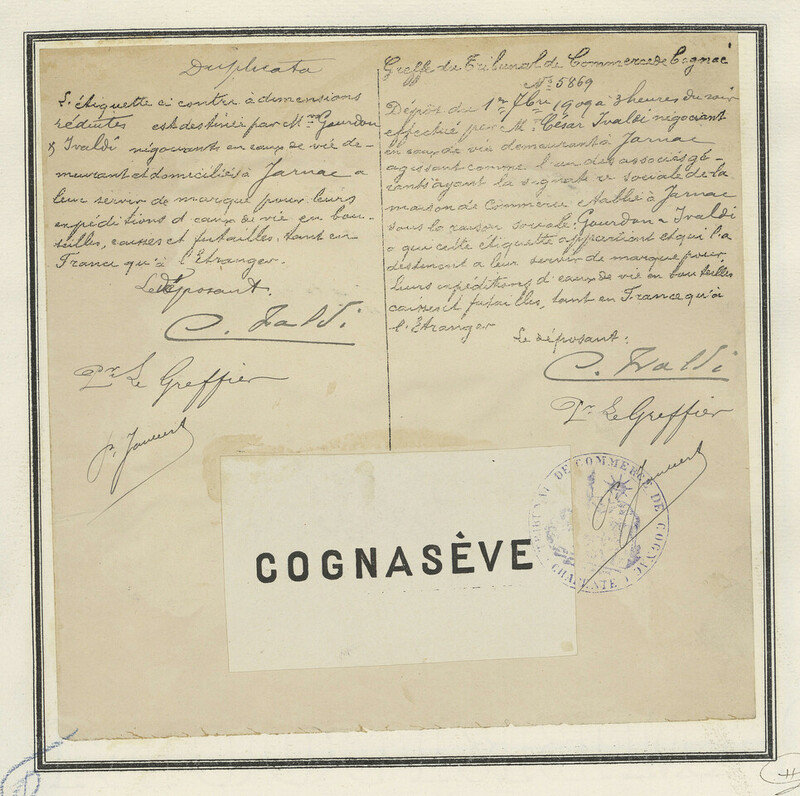 Duplicata
L'étiquette ci contre à dimensions
réduites est destinée par Mrs Gourdon
& Ivaldi négociants en eaux de vie de-
meurant et domiciliés à Jarnac a
leur servir de marque pour leurs
expéditions d'eaux de vie en bou-
teilles, caisses et futailles, tant en
France qu'à l'Etranger.
Le déposant.
C. Ivaldi
Pr Le Greffier
Greffe du Tribunal de Commerce de Cognac
No 5869
Dépôt du 1er 7bre 1909 à 3 heures du soir
effectué par Mr César Ivaldi négociant
en eaux de vie demeurant à Jarnac
agissant comme l'un des associés gé-
rants ayant la signature sociale de la
maison de Commerce établie à Jarnac
sous la raison sociale: Gourdon & Ivaldi
a qui cette étiquette appartient et qui l'a
destinent a leur servir de marque pour
leurs expéditions d'eaux de vie en bouteilles
caisses et futailles, tant en France qu'à
l'Etranger
Le déposant:
C. Ivaldi
Pr Le Greffier
TRIBUNAL DE COMMERCE DE COGNAC
CHARENTE
COGNASÈVE